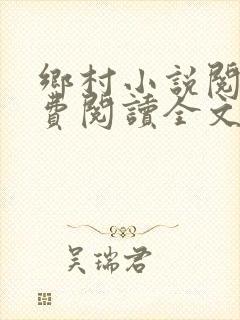 鄉村小說閱
費閱讀全文
吳瑞君